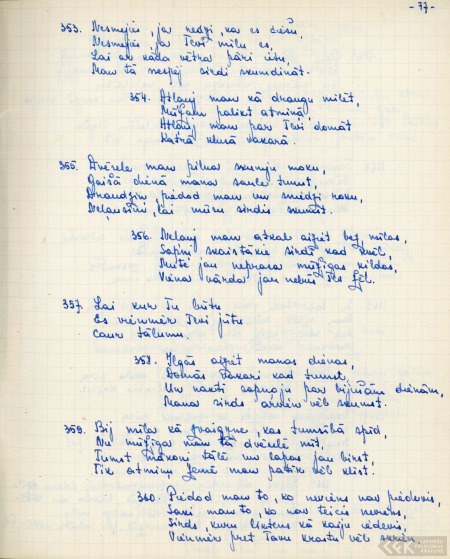 - 77 -
353. Nesmejies, ja redzi, ka es ciešu,
Nesmejies, ja Tevi mīlu es,
Lai ar kāda vētra pāri ietu,
Man tā nespēj sirdi skumdināt.
354. Atļauj man kā draugu mīlēt,
Mūžam palikt atmiņā,
Atļauj man par Tevi domāt
Katrā klusā vakarā.
355. Dvēsele man pilna skumju moku,
Gaišā dienā mana saule tumst,
Draudziņ, piedod man un sniedz roku,
Neļausim, lai mūsu sirdis skumst.
356. Neļauj man atkal aiziet bez mīlas,
Sapņi skaistākie sirdī kad zied,
Mute jau neprasa mūžīgas ķīlas,
Viena vārda jau nebūs žēl.
357. Lai kur Tu būtu
Es vienmēr Tevi jūtu
Caur tālumu.
358. Ilgās aiziet manas dienas,
Domās vakari kad tumst,
Un nakti sapņoju par bijušām dienām,
Mana sirds arvien vēl skumst.
359. Bij mīla kā zvaigzne, kas tumsībā spīd,
Nu mūžīga man tā dvēselē mīt,
Tumst mākoņi tālē un lapas jau birst,
Tik atmiņu ziemā man palik vēl klīst.
360. Piedod man to, ko neviens nav piedevis,
Saki man to, ko nav teicis neviens,
Sirds, kuru liktens kā kaiju iedevis,
Vienmēr pret Tavu krastu vēl skrien.
LATVIEŠU FOLKLORAS KRĀTUVE